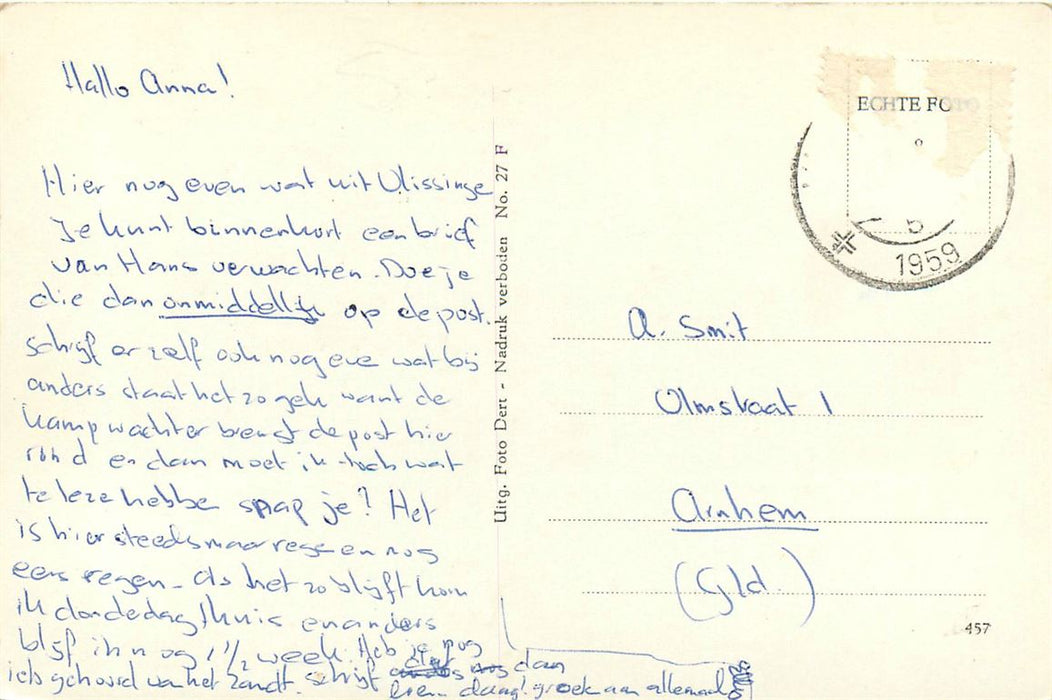 Hallo Anna!
Hier nog even wat uit Vlissinge
Je kunt binnenkort een brief
van Hans verwachten. Doe je
die dan onmiddellijk op de post.
Schrijf er zelf ook nog eve wat bij
anders staat het zo gek want de
kampwachter brengt de post hier
rond en dan moet ik toch wat
te leze hebbe snap je? Het
is hier steeds maar rege en nog
eens regen - Als het zo blijft kom
ik donderdag thuis en anders
blijf ik nog 1 1/2 week. Heb je nog
iets gehoord van het Zandt. Schrijf dan
daag! groete aan allemaal
Uitg. Foto Dert - Nadruk verboden No. 27 F
ECHTE FOTO
5
1959
A. Smit
Olmstraat 1
Arnhem
(Gld.)
457